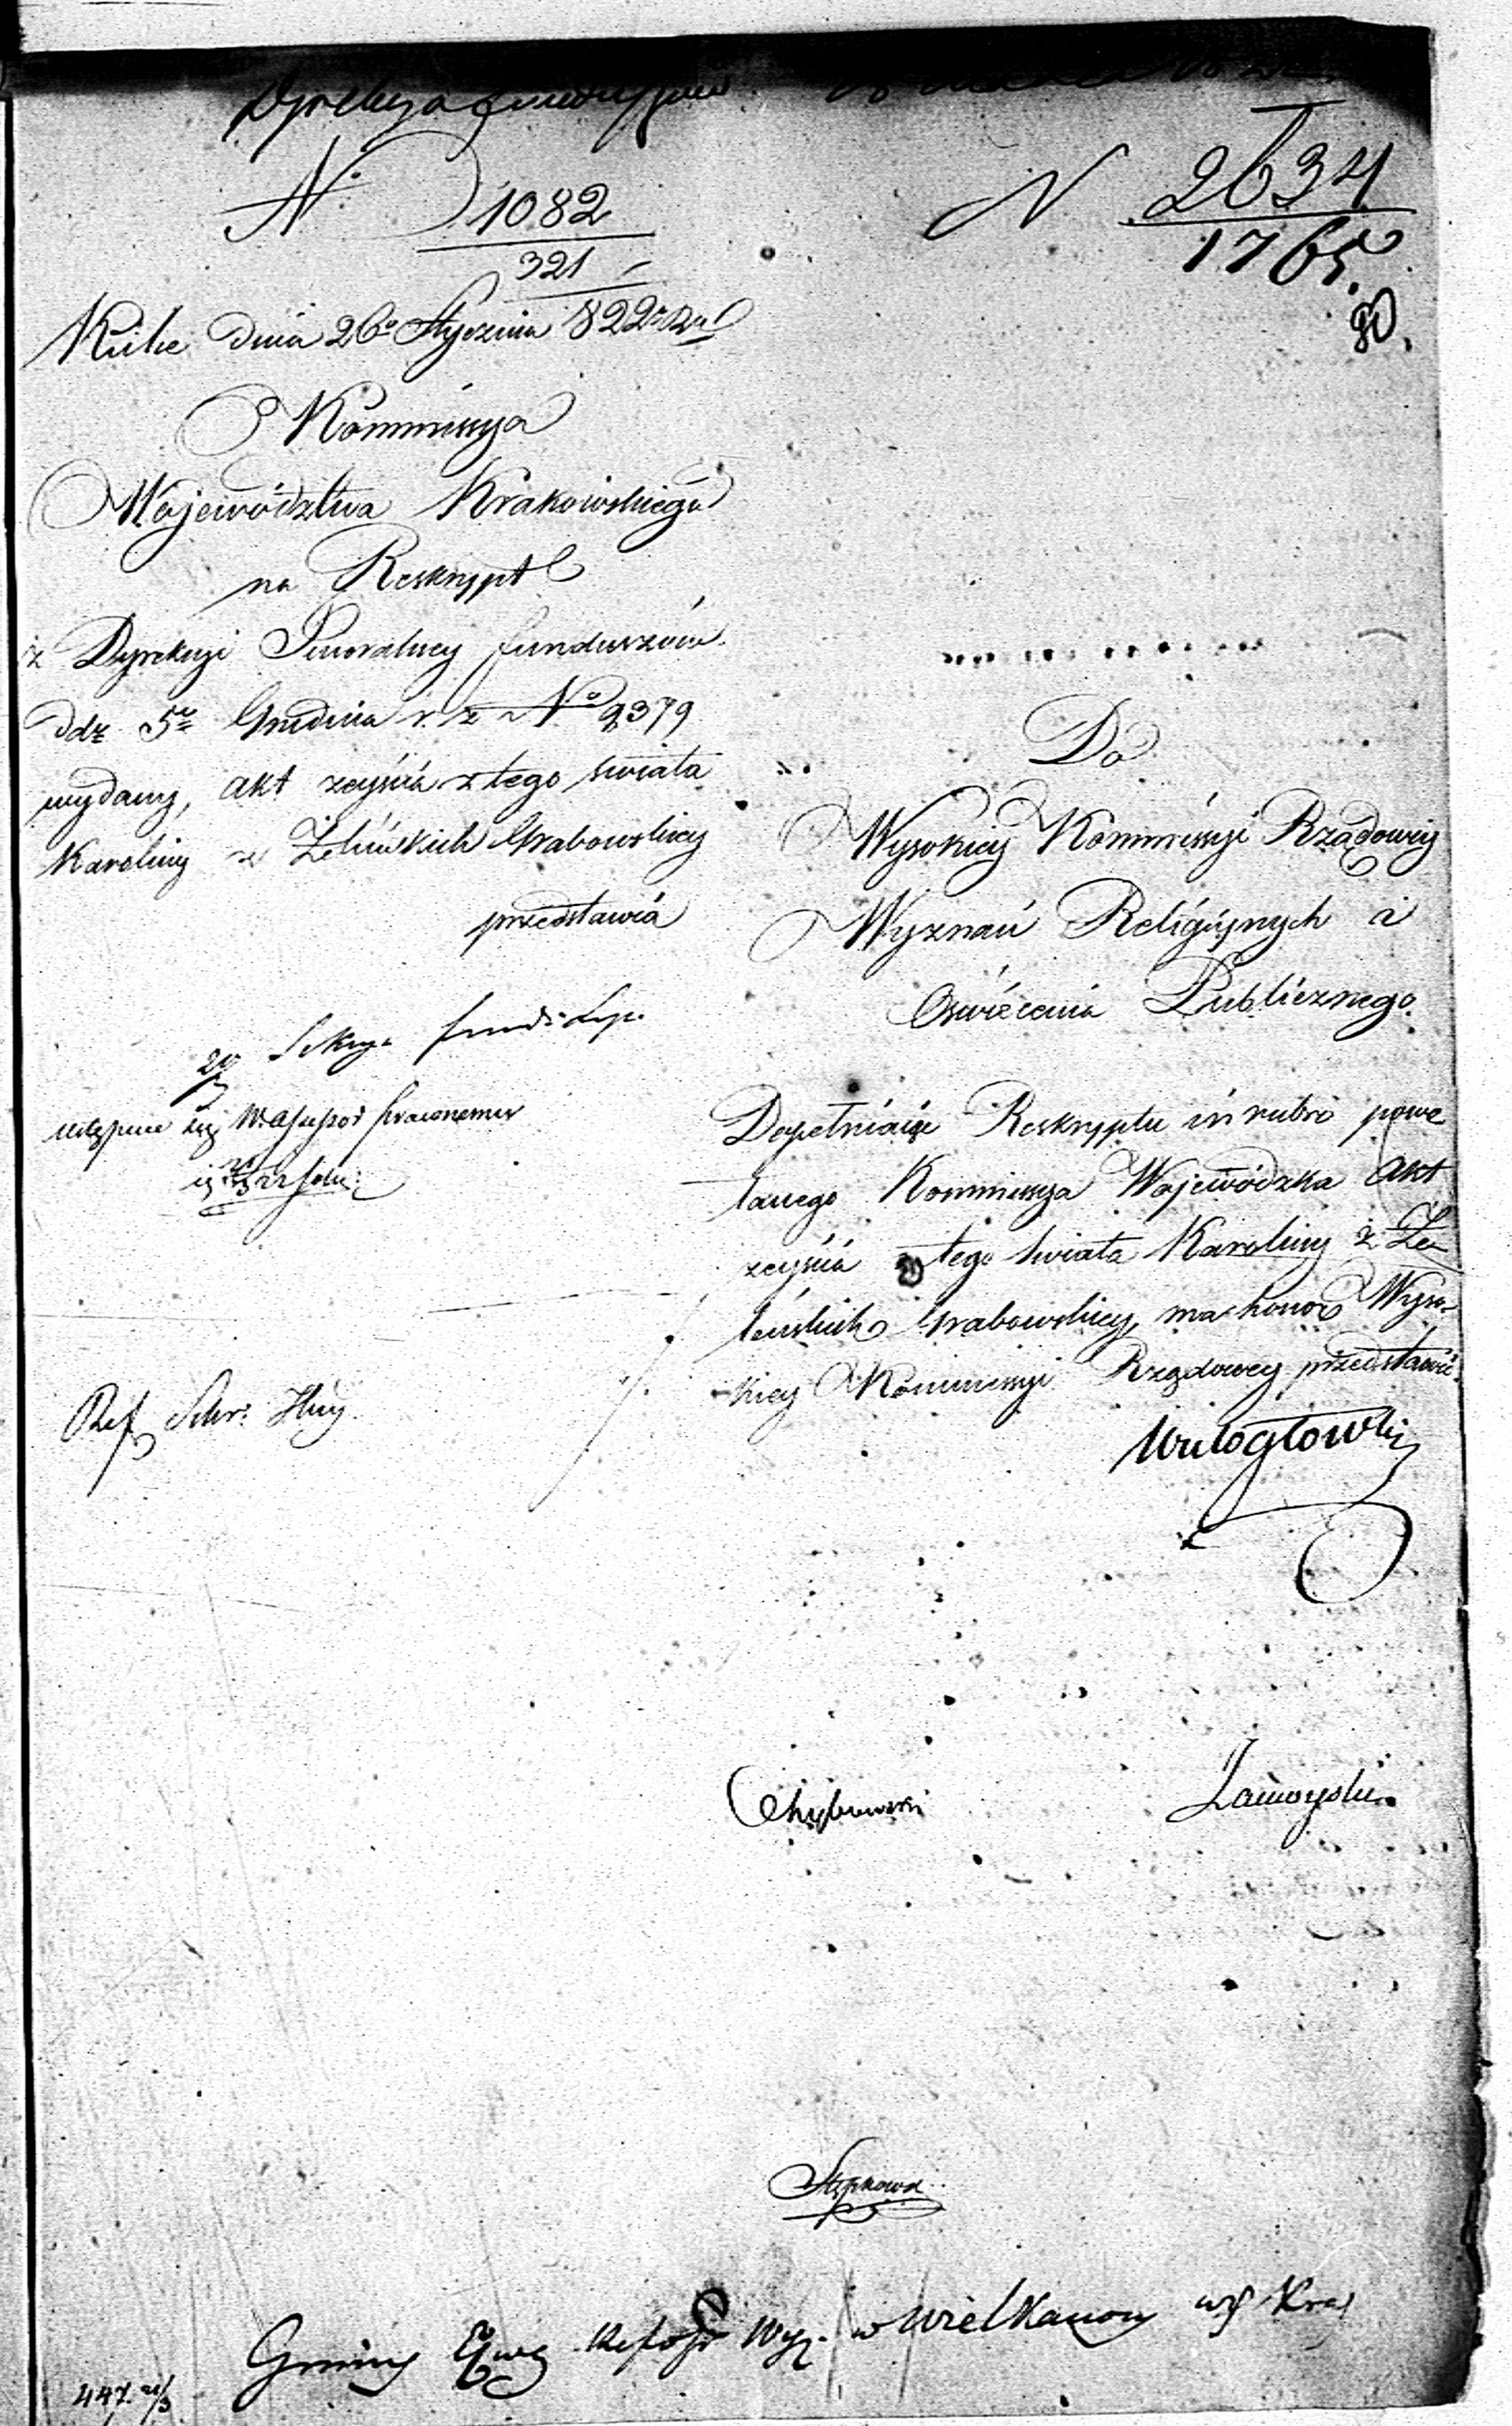 Dyrekcya Funduszów
N 1082
321
N 2634
1765.
80.
Kielce dnia 26o Stycznia 822 roku
Kommissya
Województwa Krakowskiego
na Reskrypt
z Dyrekcyi Generalney funduszów
ddz 5go Grudnia r. z No 9379
wydany, akt zeyścia z tego świata
Karoliny z Żeleńskich Grabowskiey
przedstawia
Do
Wysokiey Kommissyi Rządowey
Wyznań Religiynych i
Oświecenia Publicznego.
Sekcya fund:
Dopełniaiąc Reskryptu in rubro powo
łanego Kommissya Wojewódzka akt
zeyścia z tego świata Karoliny z Że
leńskich Grabowskiey, ma honor Wyso-
kiey Kommissyi Rządowey przedstawić.
Wielogłowski
Ref
Zamoyski
Gminy Ewg Reform Wyz. w Wielkanocy wf Krak
447. 21/3